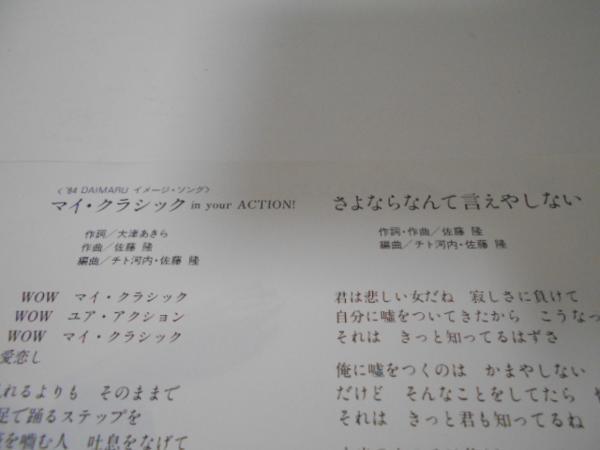 〈'84 DAIMARU イメージ・ソング〉
マイ・クラシック in your ACTION!
作詞／大津あきら
作曲／佐藤 隆
編曲／チト河内・佐藤 隆
WOW マイ・クラシック
WOW ユア・アクション
WOW マイ・クラシック
愛恋し
れるよりも そのままで
足で踊るステップを
を噛む人 吐息をなげて
さよならなんて言えやしない
作詞・作曲／佐藤 隆
編曲／チト河内・佐藤 隆
君は悲しい女だね 寂しさに負けて
自分に嘘をついてきたから こうなっ
それは きっと知ってるはずさ
俺に嘘をつくのは かまやしない
だけど そんなことをしてたら
それは きっと君も知ってるね